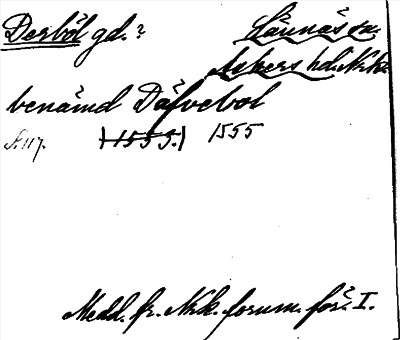 Derböl gd.?
Lännäs sn.
Askers hd. Nrke.
benämd Dåfvebol
S. 117. (1555.) 1555
Medd. fr. Nrk. fornm. för. I.